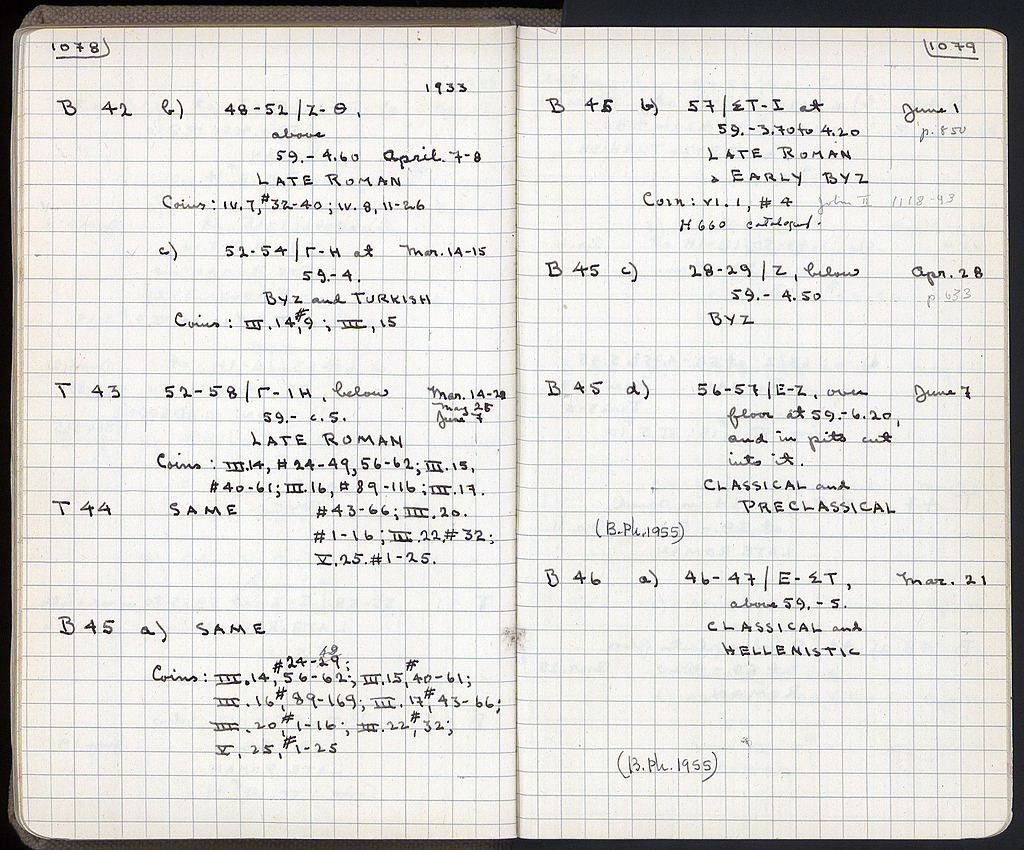 1078
1933
B 42 b) 48-52 / Z-Θ,
above
59.-4.60 April 7-8
LATE ROMAN
Coins: IV.7, #32-40; IV.8, 11-26
c) 52-54 / Γ-H at Mar. 14-15
59.-4.
BYZ and TURKISH
Coins: III.14, #9; III, 15
T 43 52-58 / Γ-IH, below Mar. 14-20
May 25
59.- c.5. June 7
LATE ROMAN
Coins: III.14, #24-49, 56-62; III.15,
#40-61; III.16, #89-116; III.17.
T 44 SAME #43-66; III.20.
#1-16; III.22 #32;
V.25.#1-25.
B 45 a) SAME
49
#24-29;
Coins: III.14, 56-62; III.15, #40-61;
III.16, #89-169; III.17, #43-66;
III.20, #1-16; III.22, #32;
V.25, #1-25
1079
B 45 b) 57 / ΣT-I at June 1
59.-3.70 to 4.20 p. 850
LATE ROMAN
& EARLY BYZ
Coin: VI.1, #4 John II 1118-43
H 660 catalogued.
B 45 c) 28-29 / Z, below Apr. 28
59.-4.50 p. 633
BYZ
B 45 d) 56-57 / E-Z, over June 7
floor at 59.-6.20,
and in pits cut
into it.
CLASSICAL and
PRECLASSICAL
(B.Ph. 1955)
B 46 a) 46-47 / E-ΣT, Mar. 21
above 59.-5.
CLASSICAL and
HELLENISTIC
(B.Ph. 1955)